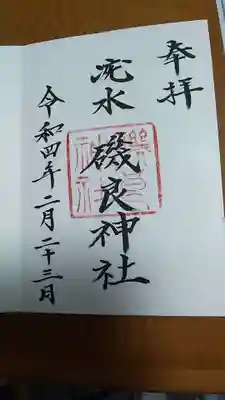 奉拝
疣水
磯良神社
令和四年二月二十三日